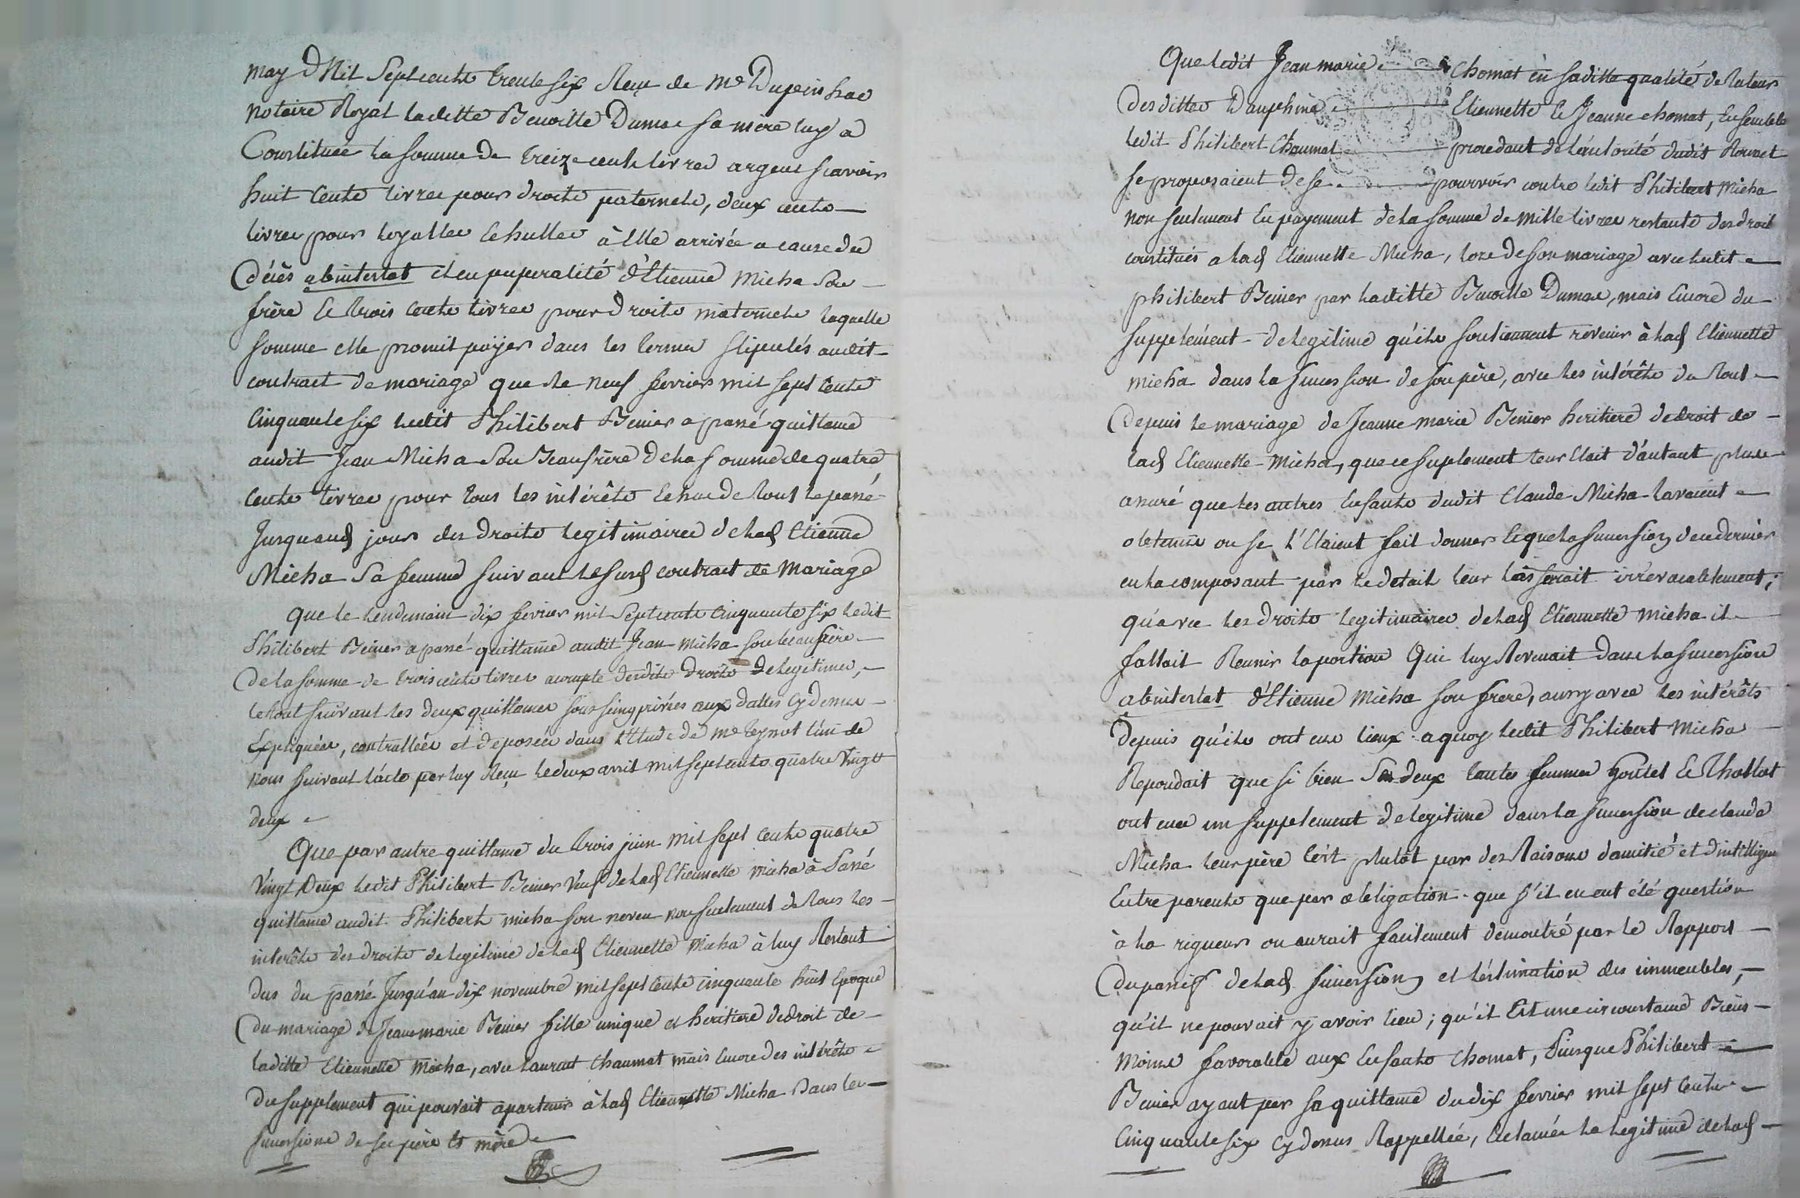 may Mil Sept cents trente six Reçu de Me Dupeinhac
notaire Royal laditte Benoitte Dumas sa mère luy a
Constituée la somme de treize cents livres argent scavoir
huit Cents livres pour droits paternels, deux cents
livres pour loyalle Echutte à Elle arrivée a cause du
décès abintestat et en pupilarité d'Etienne Micha Son
frère Et trois Cents livres pour droits maternels laquelle
somme elle promit payer dans les termes stipulés audit
contract de mariage que le neuf fevrier mil sept Cents
Cinquante six ledit Philibert Benier a passé quittance
audit Jean Micha Son beaufrère de la somme de quatre
Cents livres pour tous les intérêts Echus de tout le passé
Jusqu'aud jour des droits legitimaires de lad Etienne
Micha Sa femme suivant le susd contract de Mariage
que le lendemain dix fevrier mil Sept cents Cinquante six ledit
Philibert Benier a passé quittance audit Jean Micha son beaufrère
De la somme de trois cents livres acompte desdits droits de legitime,
le tout suivant les deux quittances sous seing privées aux dattes cy dessus
Expliquées, controllées et déposées dans l'Etude de Me Teynot l'un de
nous suivant l'acte par luy Reçu le deux avril mil sept cents quatre Vingt
deux
Que par autre quittance du trois juin Mil sept Cents quatre
Vingt Deux ledit Philibert Benier Veuf de lad Etiennette Micha à Passé
quittance audit Philibert Micha son neveu non seulement de tous les
intérêts des droits de legitime de lad Etiennette Micha à luy Restant
dus du passé Jusqu'au dix novembre mil sept Cents cinquante huit Epoque
Du mariage de Jeanne marie Benier fille unique et heritiere de droit de
laditte Etiennette Micha, avec Laurent Chaumat mais Encore des intérêts
Du supplement qui pouvait apartenir à lad Etiennette Micha Dans les
successions de ses père et mère
Que ledit Jean marie Chomat en saditte qualité de tuteur
Desdittes Dauphine Etiennette Et Jeanne Chomat, Ensemble
ledit Philibert Chaumat procedant de l'autorité dudit
se proposaient de se pourvoir contre ledit Philibert Micha
non seulement En payement de la somme de mille livres restante des droits
constitués a lad Etiennette Micha, lors de son mariage avec ledit
philibert Benier par laditte Benoitte Dumas, mais Encore du
supplément de legitime qu'ils soutiennent revenir à lad Etiennette
Micha dans la succession de son père, avec les intérêts du tout
Depuis le mariage de Jeanne marie Benier heritiere de droit de
lad Etiennette Micha, que ce suplement leur Etait d'autant plus
assuré que les autres Enfants dudit Claude Micha lavaient
obtenu ou se l'Etaient fait donner Et que la succession de ce dernier
en la composant par le detail leur laisserait irrévocablement;
qu'avec les droits legitimaires de lad Etiennette Micha il
fallait Reunir la portion Qui luy Revenait dans la succession
abintestat d'Etienne Micha son frere, aussy avec les intérêts
Depuis qu'ils ont eu lieux a quoy ledit Philibert Micha
Repondait que si bien Ses deux tantes femmes Goutet Et Thollot
ont eu un supplement de legitime dans la succession de claude
Micha leur père c'est plutôt par des Raisons d'amitié et d'intelligence
Entre parents que par obligation que s'il en eut été question
à la rigueur on aurait facilement démontré par le Rapport
Du passif de lad succession et l'estimation des immeubles,
qu'il ne pouvait y avoir lieu; qu'il Est une circonstance Bien
Moins favorable aux Enfants Chomat, Puisque Philibert
Benier ayant par sa quittance du dix fevrier mil sept Cents
Cinquante six cy dessus Rappellée, la legitime de lad